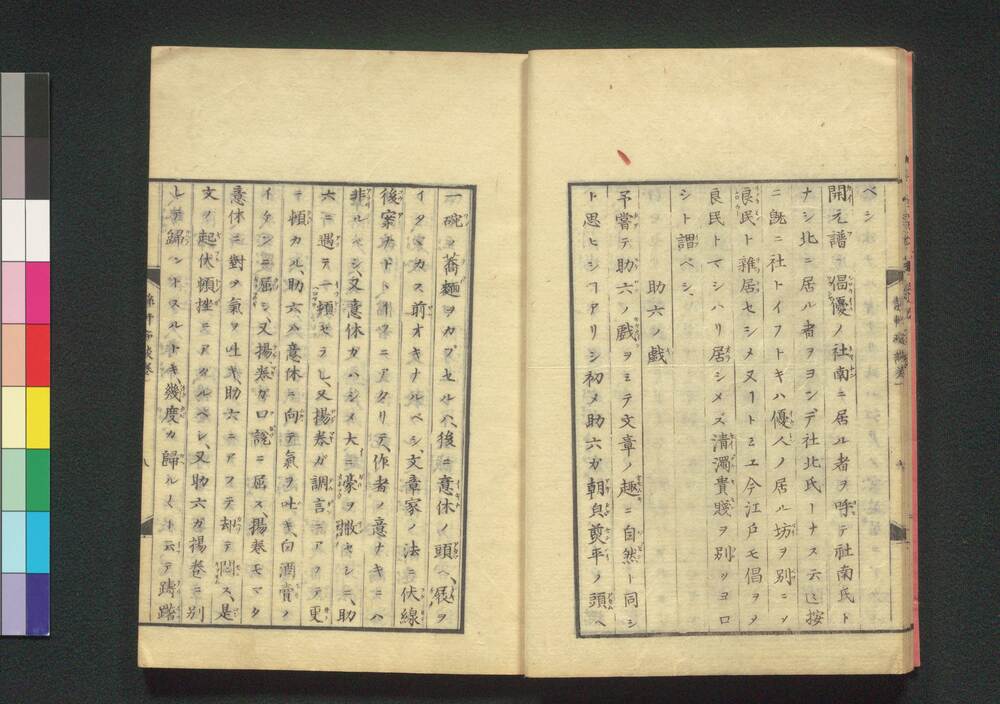 ベシ
開元譜ニ倡優ノ社南ニ居ル者ヲ呼テ社南氏ト
ナシ北ニ居ル者ヲヨンデ社北氏トナス云々按
ニ既ニ社トイフトキハ優人ノ居ル坊ヲ別ニシ
良民ト雜居セシメヌトミエ今江戸モ倡ヲ
良民トマシハリ居シメズ清濁貴賤ヲ別ツヨロ
シト謂ベシ
助六ノ戯
予嘗テ助六ノ戯ヲミテ文章ノ趣ニ自然ト同シ
ト思ヒシコアリシ初メ助六ガ朝皃奠平ノ頭ヘ
一碗ノ蕎麺ヲカブセルハ後ニ意休ノ頭ヘ屐ヲ
イタヾカス前オキナルベシ文章家ノ法ニ伏線
後案ナドトイフニアタリテ作者ノ意ナキニハ
非ルベシ又意休ガハジメ大ニ豪ヲ ヤセシニ助
六ニ遇テ一頓セラレ又揚巻ガ調言ニアフテ更
ニ頓カル助六ハ意休ニ向テ氣ヲ吐キ白酒賣ノ
イケンニ屈シ又揚巻ガロ說ニ屈ス揚巻モマタ
意休ニ對ヲ氣ヲ吐キ助六ニアフテ却テ 是
文ノ起伏頓挫ニアタルベシ又助六ガ揚巻ニ別
レテ歸ントスルトキ幾度カ歸ルト云テ躊躇